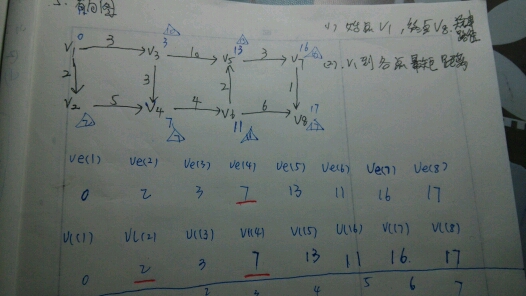 有向图
(1) 始点V1, 终点V8.
0 3 13 16
V1 3 V3 10 V5 3 V7
(2). V1到各点最短距离
2 3 2 1
V2 5 V4 4 V6 6 V8
7 11 17
Ve(1) Ve(2) Ve(3) Ve(4) Ve(5) Ve(6) Ve(7) Ve(8)
0 2 3 7 13 11 16 17
Vl(1) Vl(2) Vl(3) Vl(4) Vl(5) Vl(6) Vl(7) Vl(8)
0 2 3 7 13 11 16. 17
4 5 6 7